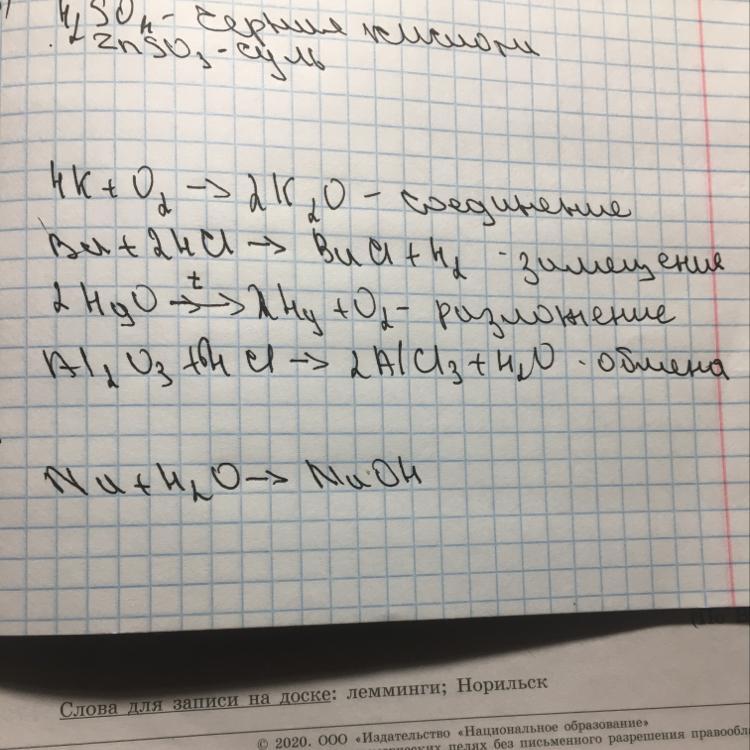 H₂SO₄ - серная кислота
ZnSO₃ - суль
4K + O₂ → 2K₂O - соединение
Ba + 2HCl → BaCl + H₂ - замещения
2HgO →ᵗ→ 2Hg + O₂ - разложение
Al₂O₃ + 6HCl → 2AlCl₃ + H₂O - обмена
Na + H₂O → NaOH
Слова для записи на доске: лемминги; Норильск
© 2020. ООО «Издательство «Национальное образование»
целях без письменного разрешения правообл